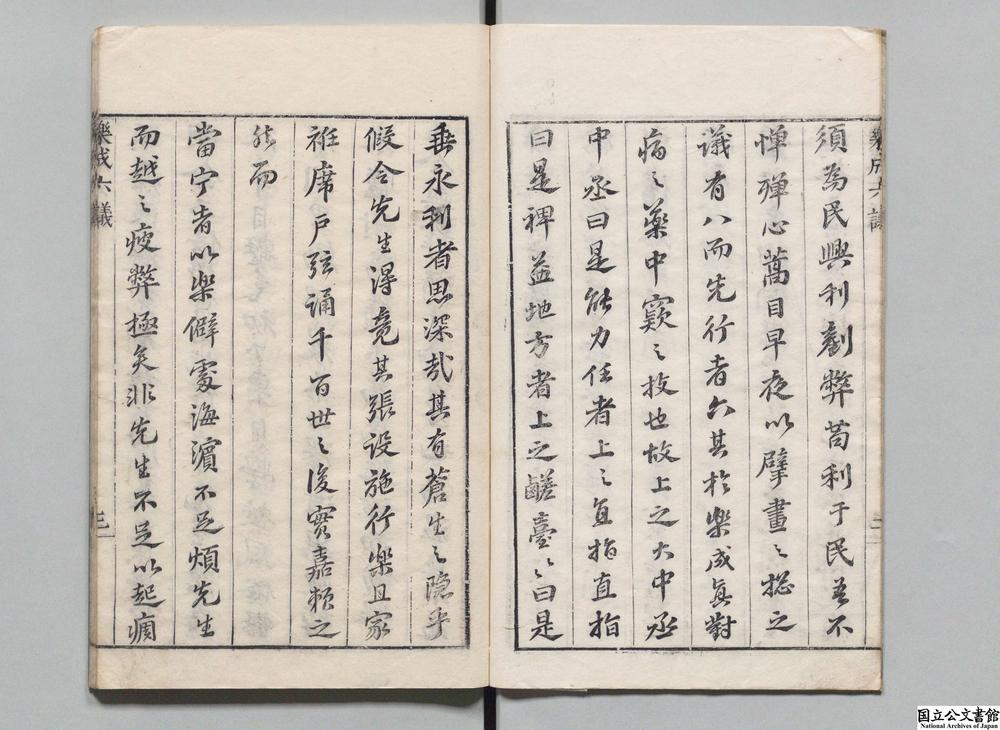 須為民興利剷弊茍利于民善不
憚殫心蒿目早夜以擘畫之総之
議有八而先行者六其於樂成真對
病之藥中窾之技也故上之大中丞
中丞曰是能力任者上之直指直指
曰是裨益地方者上之鹺臺〻曰是
垂永利者思深哉其有蒼生之隱乎
假令先生得竟其張設施行樂且家
袵席戶弦誦千百世之後實嘉賴之
然而
當宁者以樂僻處海濱不足煩先生
而越之疲弊極矣非先生不足以起痼
樂成六議
三
樂成六議
二
国立公文書館
National Archives of Japan